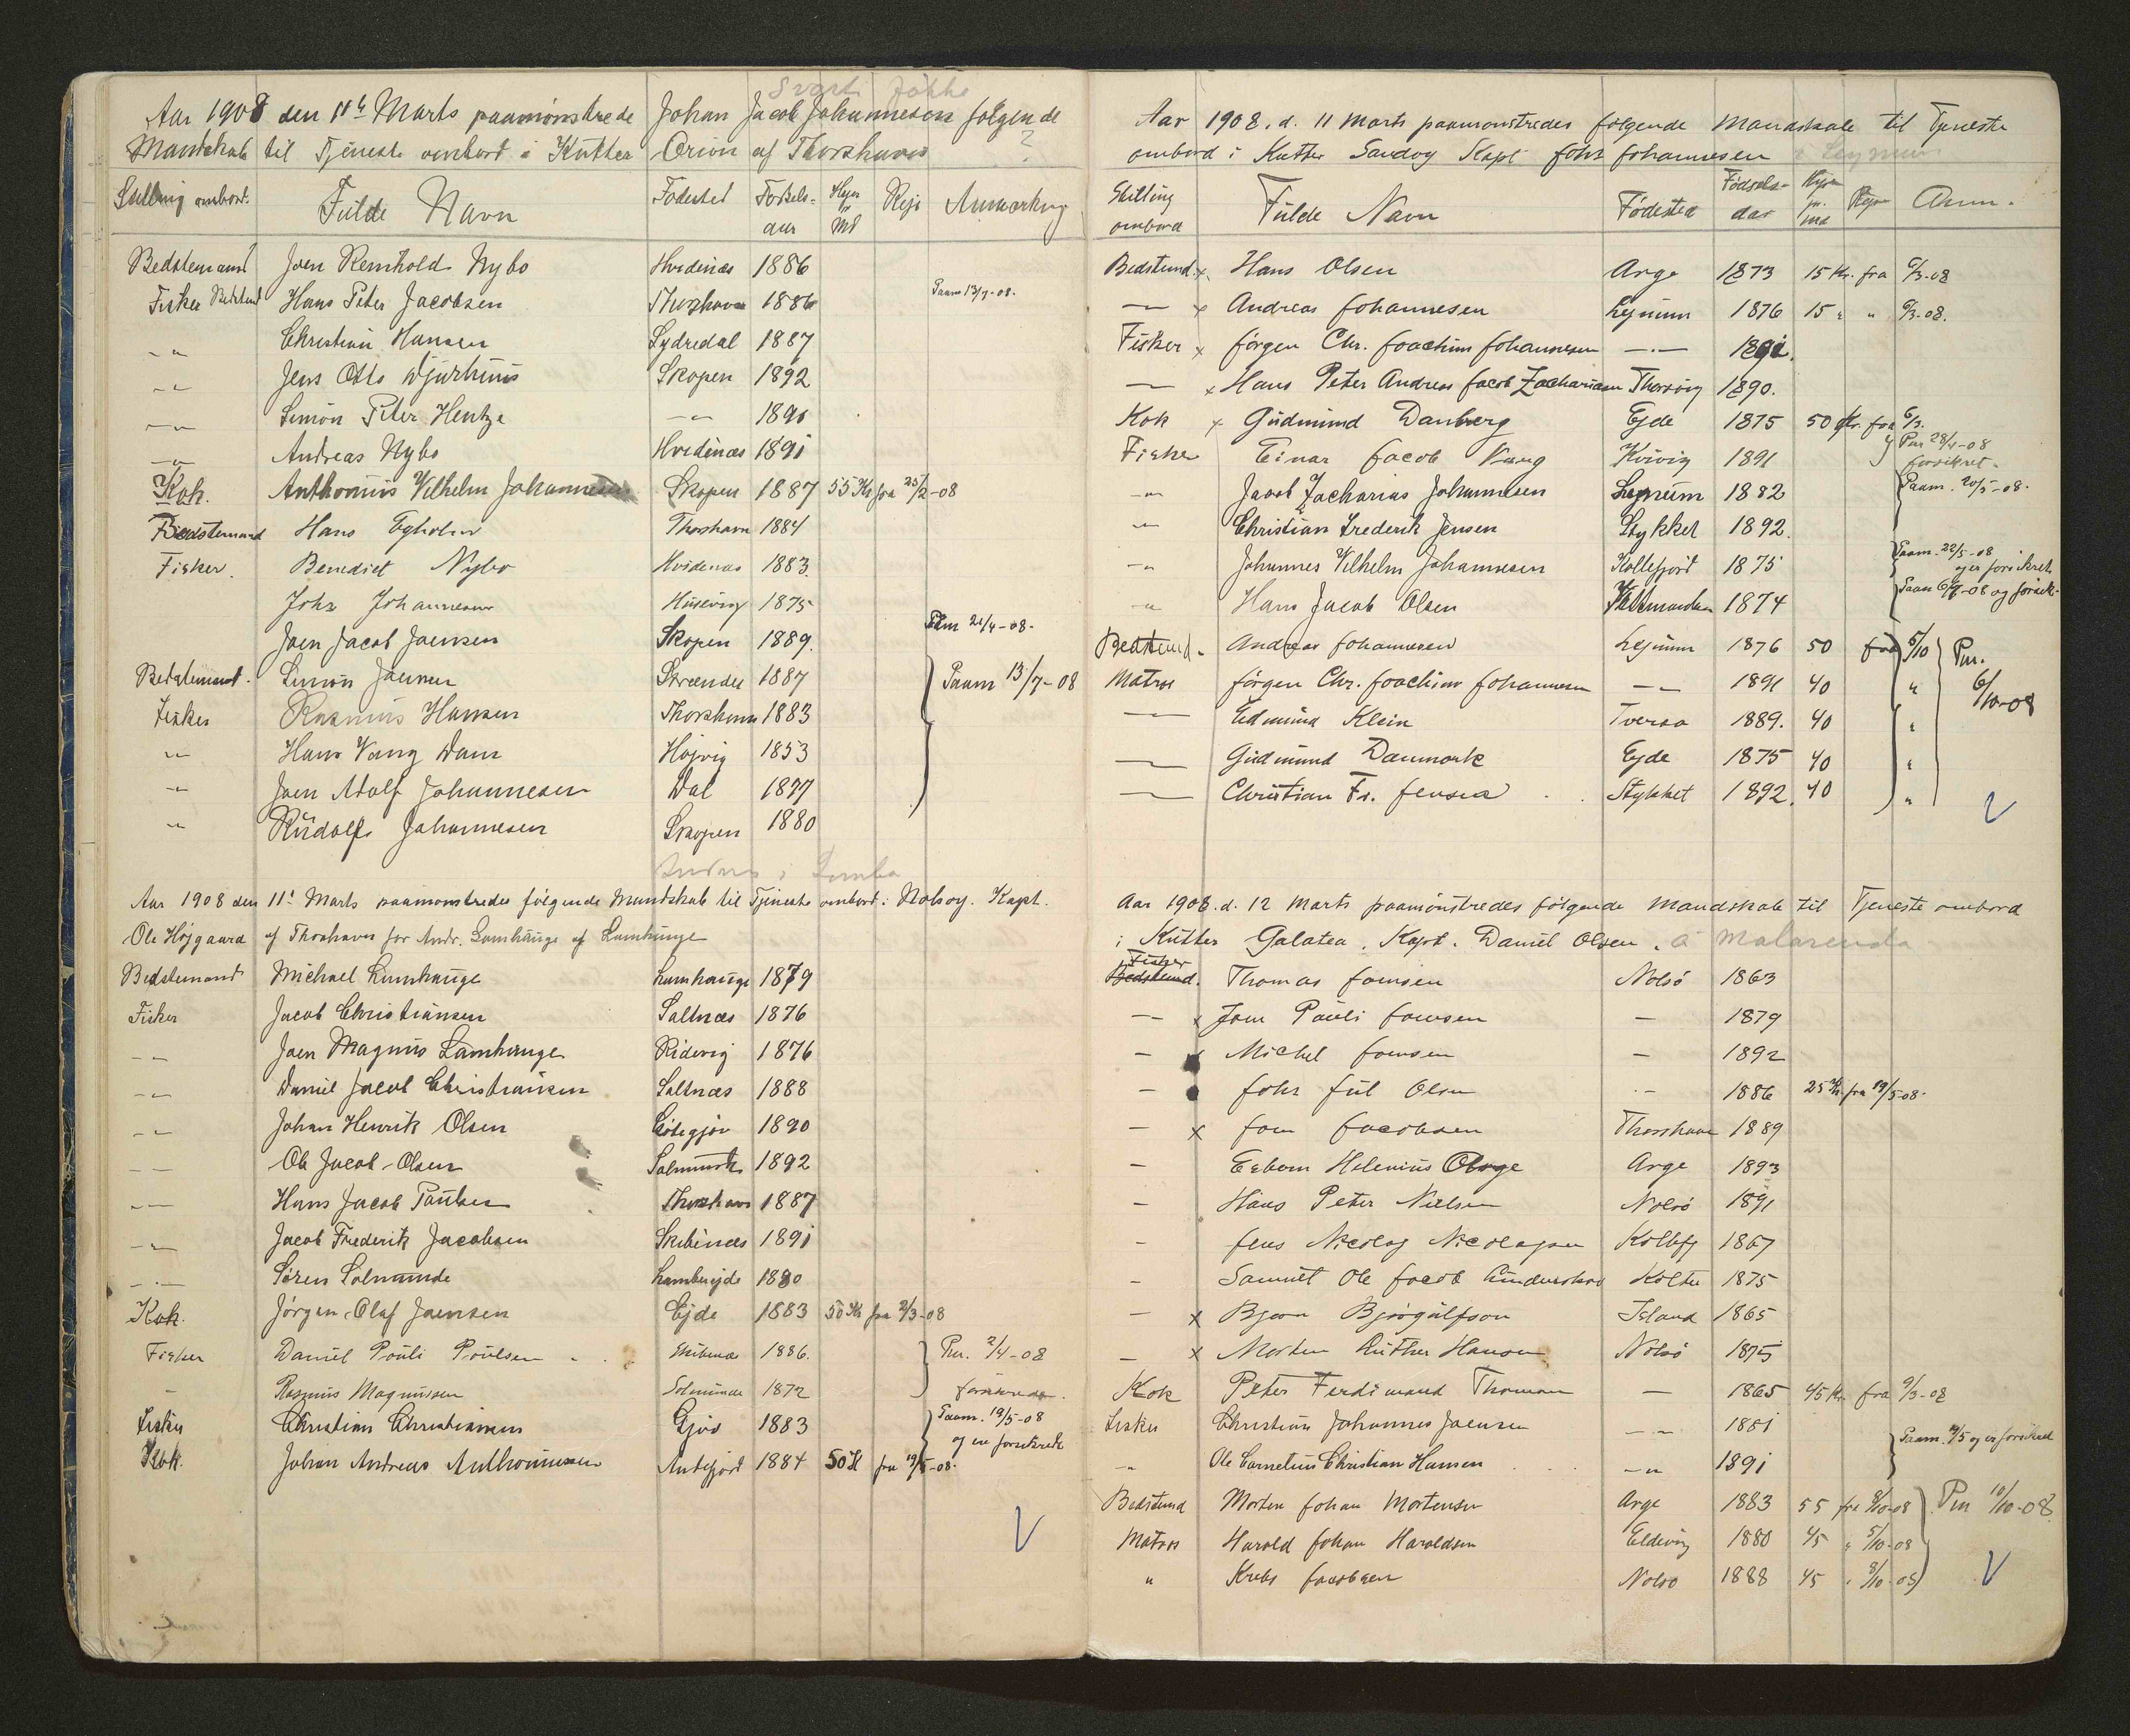 Svarti Jákke
Aar 1908 den 11te Marts paamönstrede Johan Jacob Johannesen følgende
Mandskab til Tjeneste ombord i Kutter Orion af Thorshavn ?
Stilling ombord. Fulde Navn Fødested Fødsels-aar Hyre pr Md Rejse Anmærkning
Bedstemand Joen Reinhold Nybo Hvidenæs 1886
Fisker Bedstemd Hans Peter Jacobsen Thorshavn 1886 Paam 13/7-08.
-"- Christian Hansen Sydredal 1887
-"- Jens Otto Djurhuus Skopen 1892
-"- Simon Peter Hentze -"- 1890
-"- Andreas Nybo Hvidenæs 1891
Kok. Anthonius Vilhelm Johannesen Skopen 1887 55 Kr fra 25/2-08
Bedstemand Hans Egholm Thorshavn 1884
Fisker. Benedict Nybo Hvidenæs 1883.
Johs Johannesen Husevig 1875
Joen Jacob Joensen Skopen 1889. Paam 21/4-08.
Bedstemand. Simon Joensen 1887 Paam 13/7-08
Fisker Rasmus Hansen Thorshavn 1883
-"- Hans Vang Dam Højvig 1853
-"- Joen Adolf Johannesen Dal 1877
-"- Rudolf Johannesen Skopen 1880
Aar 1908 den 11' Marts paamonstredes følgende Mandskab til Tjeneste ombord i Nolsoy. Kapt.
Ole Højgaard af Thorshavn for Andr. Lamhauge af Lamhauge
Bedstemand Michael Lamhauge Lamhauge 1879
Fisker Jacob Christiansen Saltnæs 1876
-"- Joen Magnus Lamhauge Ridevig 1876
-"- Daniel Jacob Christiansen Saltnæs 1888
-"- Johan Henrik Olsen Götegjov 1890
-"- Ole Jacob Olsen 1892
-"- Hans Jacob Poulsen Thorshavn 1887
-"- Jacob Frederik Jacobsen Skibenæs 1891
-"- Søren Solmunde Lambergjde 1880
Kok. Jørgen Olaf Joensen Ejde 1883 50 Kr fra 2/3-08
Fisker Daniel Pouli Poulsen Skibenæs 1886. Pm. 2/4-08
- Rasmus Magnussen Solmunde 1872 forsikrede.
Fisker Christian Christiansen Gjov 1883 Paam. 19/5-08
Kok. Johan Andreas Anthoniussen Andefjord 1884 50 Kr fra 19/5-08. og ere forsikrede
Aar 1908. d. 11 Marts paamonstredes følgende Mandskab til Tjeneste
ombord i Kutter Sandoy Kapt Johs Johannesen i Leynum
Stilling ombord Fulde Navn Fødested Fødsels-aar Hyre pr. Md Rejse Anm.
Bedstemd. x Hans Olsen Arge 1873 15 Kr. fra 6/3-08
— x Andreas Johannesen Lejnum 1876 15 " " 6/3-08.
Fisker x Jörgen Chr. Joachim Johannesen -"- 1891.
— x Hans Peter Andreas Jacob Zachariasen Thorsvig 1890.
Kok x Gudmund Danberg Ejde 1875 50 Kr. fra 6/3.
Fisker Einar Jacob Vang Kvivig 1891 Pm 28/4-08 forsikret.
-"- Jacob Zacharias Johannesen Lejnum 1882 Paam. 20/5-08.
-"- Christian Frederik Jensen Stykket 1892.
-"- Johannes Vilhelm Johannesen Kollefjord 1875 Paam. 22/5-08 og er forsikret
-"- Hans Jacob Olsen Vestmanhavn 1874
Bedstemd. Andreas Johannesen Lejnum 1876 50 fra 5/10 Pm. 6/10-08
Matros Jörgen Chr. Joachim Johannesen -"- 1891 40 "
— Edmund Klein Tveraa 1889. 40 "
— Gudmund Danmark Ejde 1875 40 "
— Christian Fr. Jensen Stykket 1892. 40 "
Aar 1908. d. 12 Marts paamönstredes følgende Mandskab til Tjeneste ombord
i Kutter Galatea. Kapt. Daniel Olsen. á Malarenda
Fisker
Bedstemd. Thomas Joensen Nolsö 1863
— x Joen Pauli Joensen — 1879
— x Michel Joensen — 1892
— Johs Jul Olsen -"- 1886 25 Kr. fra 19/5-08.
— x Joen Jacobsen Thorshavn 1889
— Esbern Helenius Arge 1893
— Hans Peter Nielsen Nolsö 1891
— Jens Nicolaj Nicolajsen Kollefj 1867
— Samuel Ole Jacob Kolter 1875
— x Bjorn Bjørgulfson Island 1865
— x Morten Luther Hansen Nolsö 1875
Kok Peter Ferdinand Thomsen — 1865 45 Kr. fra 9/3-08
Fisker Christian Johannes Joensen -"- 1881 Paam. 19/5 og er forsikret
-"- Ole Cornelius Christian Hansen -"- 1891
Bedstemd Morten Johan Mortensen Arge 1883 55 fra 8/10-08 Pm 10/10-08.
Matros Harald Johan Haraldsen Eldevig 1880 45 " 5/10-08
" Krebs Jacobsen Nolsö 1888 45 " 8/10-08